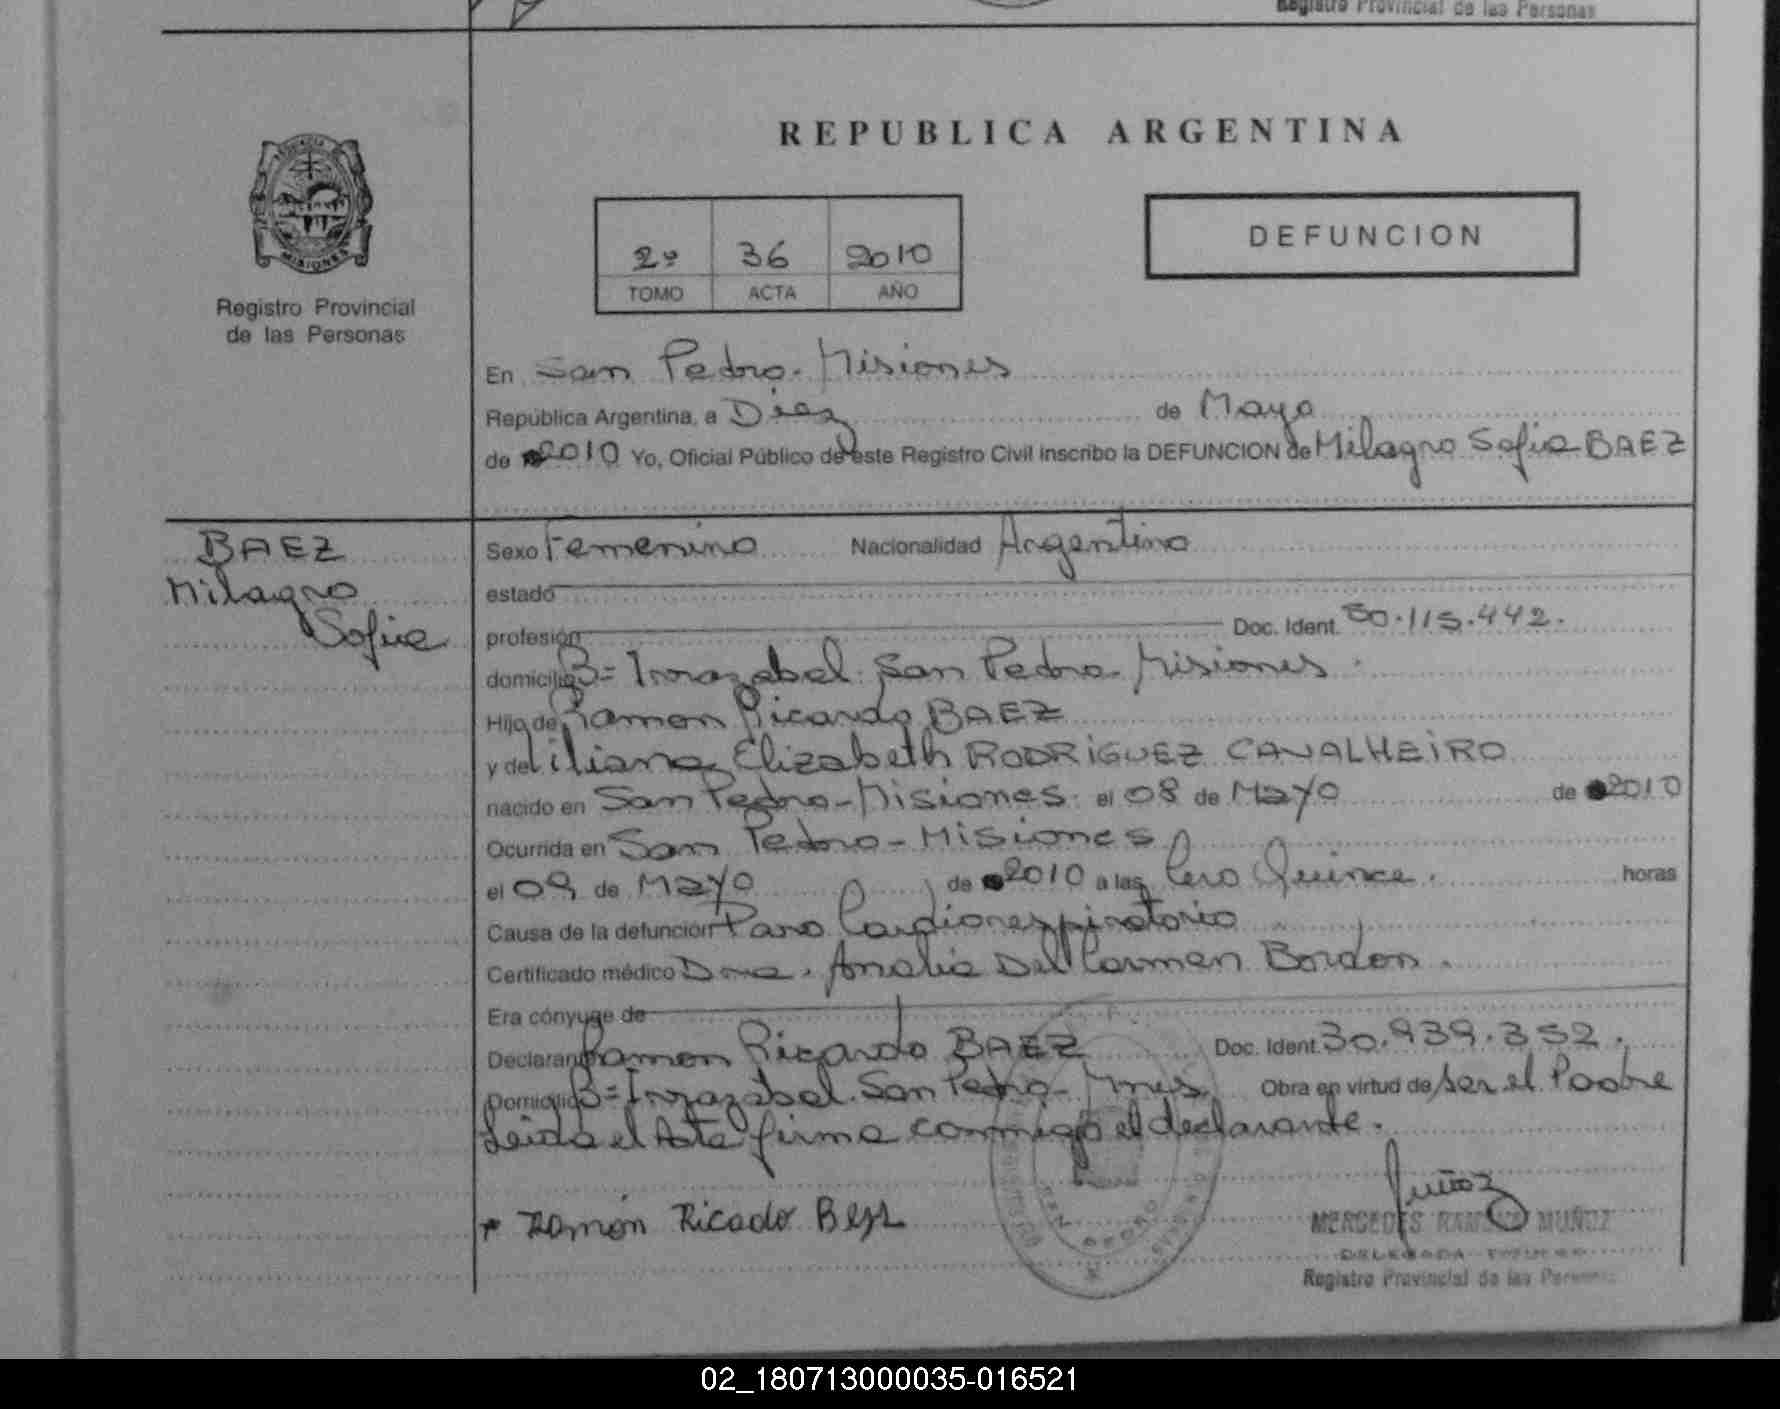 Registro Provincial de las Personas
REPUBLICA ARGENTINA
2º 36 2010
TOMO ACTA AÑO
DEFUNCION
MISIONES
Registro Provincial
de las Personas
En San Pedro. Misiones
República Argentina, a Diez de Mayo
de 2010 Yo, Oficial Público de este Registro Civil inscribo la DEFUNCION de Milagro Sofia BAEZ
BAEZ
Milagro
Sofia
Sexo Femenino Nacionalidad Argentina
estado
profesión Doc. Ident. 50.115.442.
domicilio Bº Irrazabal. San Pedro. Misiones.
Hijo de Ramon Ricardo BAEZ
y de Liliana Elizabeth RODRIGUEZ CAVALHEIRO
nacido en San Pedro-Misiones. el 08 de Mayo de 2010
Ocurrida en San Pedro-Misiones
el 09 de Mayo de 2010 a las Cero Quince. horas
Causa de la defunción Paro Cardiorespiratorio
Certificado médico Dra. Analia Del Carmen Bordon.
Era cónyuge de
Declarante Ramon Ricardo BAEZ Doc. Ident. 30.939.352.
Domicilio Bº Irrazabal. San Pedro- Mnes Obra en virtud de ser el Padre
Leida el Acta firma conmigo el declarante.
Ramón Ricado Baez
Muñoz
MERCEDES RAMONA MUÑOZ
DELEGADA
Registro Provincial de las Personas
SAN PEDRO
02_180713000035-016521